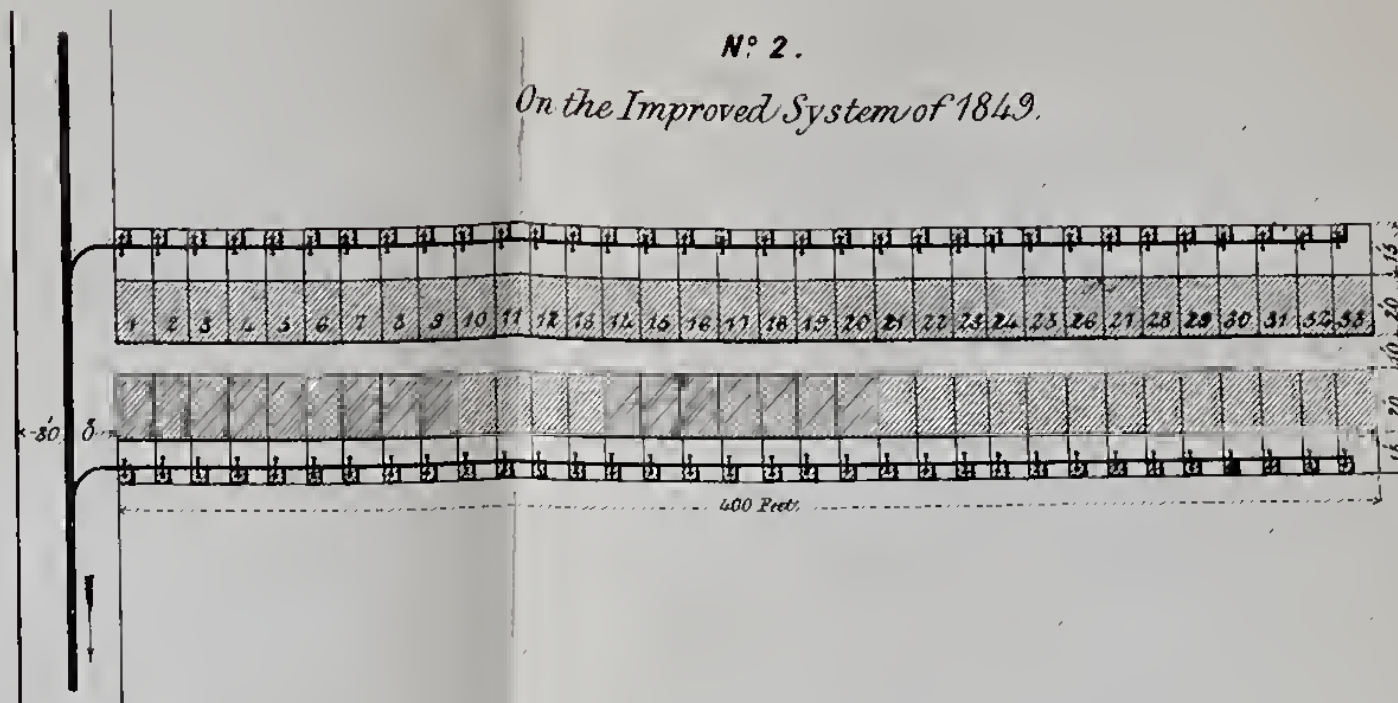 Nº 2.
On the Improved System of 1849.
1 2 3 4 5 6 7 8 9 10 11 12 13 14 15 16 17 18 19 20 21 22 23 24 25 26 27 28 29 30 31 32 33
15
20
20
15
30
400 Feet.